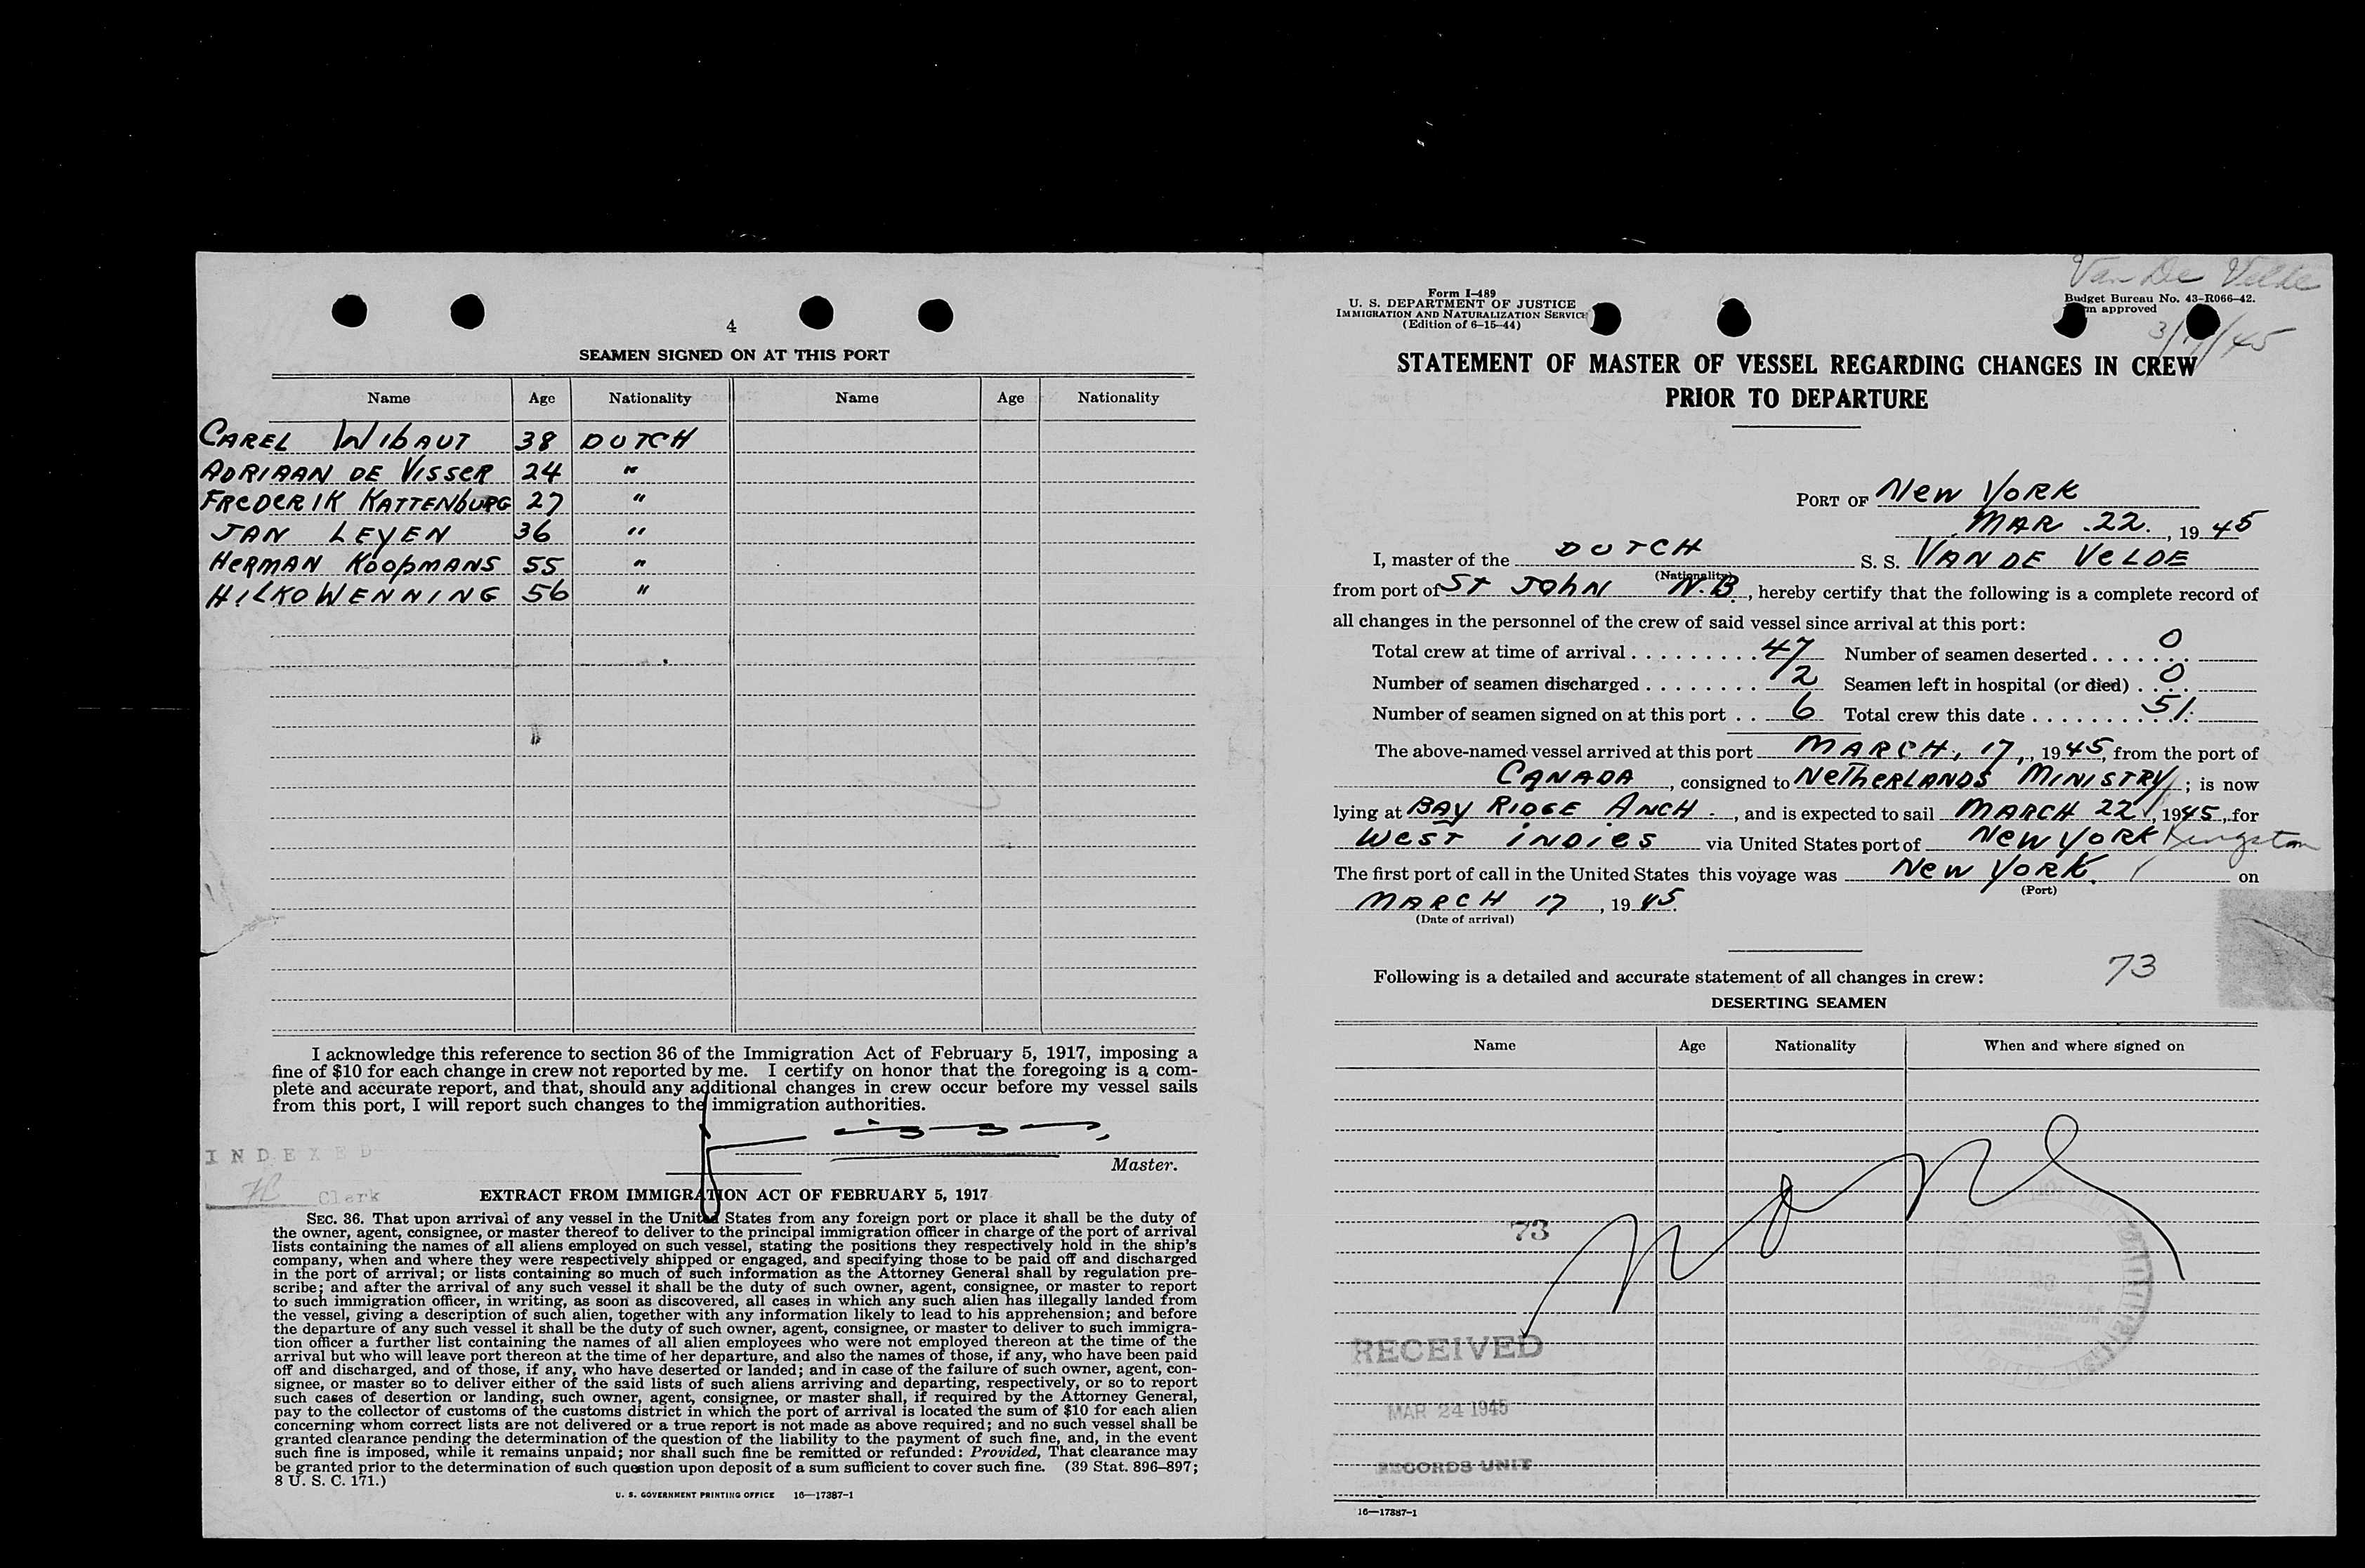 4
SEAMEN SIGNED ON AT THIS PORT
Name Age Nationality Name Age Nationality
CAREL WIBAUT 38 DUTCH
ADRIAAN DE VISSER 24 "
FREDERIK KATTENBURG 27 "
JAN LEYEN 36 "
HERMAN KOOPMANS 55 "
HILKO WENNING 56 "
I acknowledge this reference to section 36 of the Immigration Act of February 5, 1917, imposing a
fine of $10 for each change in crew not reported by me. I certify on honor that the foregoing is a com-
plete and accurate report, and that, should any additional changes in crew occur before my vessel sails
from this port, I will report such changes to the immigration authorities.
Master.
INDEXED
Clerk
EXTRACT FROM IMMIGRATION ACT OF FEBRUARY 5, 1917
SEC. 36. That upon arrival of any vessel in the United States from any foreign port or place it shall be the duty of
the owner, agent, consignee, or master thereof to deliver to the principal immigration officer in charge of the port of arrival
lists containing the names of all aliens employed on such vessel, stating the positions they respectively hold in the ship's
company, when and where they were respectively shipped or engaged, and specifying those to be paid off and discharged
in the port of arrival; or lists containing so much of such information as the Attorney General shall by regulation pre-
scribe; and after the arrival of any such vessel it shall be the duty of such owner, agent, consignee, or master to report
to such immigration officer, in writing, as soon as discovered, all cases in which any such alien has illegally landed from
the vessel, giving a description of such alien, together with any information likely to lead to his apprehension; and before
the departure of any such vessel it shall be the duty of such owner, agent, consignee, or master to deliver to such immigra-
tion officer a further list containing the names of all alien employees who were not employed thereon at the time of the
arrival but who will leave port thereon at the time of her departure, and also the names of those, if any, who have been paid
off and discharged, and of those, if any, who have deserted or landed; and in case of the failure of such owner, agent, con-
signee, or master so to deliver either of the said lists of such aliens arriving and departing, respectively, or so to report
such cases of desertion or landing, such owner, agent, consignee, or master shall, if required by the Attorney General,
pay to the collector of customs of the customs district in which the port of arrival is located the sum of $10 for each alien
concerning whom correct lists are not delivered or a true report is not made as above required; and no such vessel shall be
granted clearance pending the determination of the question of the liability to the payment of such fine, and, in the event
such fine is imposed, while it remains unpaid; nor shall such fine be remitted or refunded: Provided, That clearance may
be granted prior to the determination of such question upon deposit of a sum sufficient to cover such fine. (39 Stat. 896–897;
8 U. S. C. 171.)
U. S. GOVERNMENT PRINTING OFFICE 16—17387-1
Van De Velde
Form I-489
U. S. DEPARTMENT OF JUSTICE
IMMIGRATION AND NATURALIZATION SERVICE
(Edition of 6-15-44)
Budget Bureau No. 43-R066-42.
approved
STATEMENT OF MASTER OF VESSEL REGARDING CHANGES IN CREW
PRIOR TO DEPARTURE
PORT OF NEW YORK
MAR. 22., 1945
I, master of the DUTCH S. S. VAN DE VELDE
(Nationality)
from port of ST JOHN N.B., hereby certify that the following is a complete record of
all changes in the personnel of the crew of said vessel since arrival at this port:
Total crew at time of arrival 47 Number of seamen deserted 0
Number of seamen discharged 2 Seamen left in hospital (or died) 0
Number of seamen signed on at this port 6 Total crew this date 51
The above-named vessel arrived at this port MARCH, 17, 1945, from the port of
CANADA, consigned to NETHERLANDS MINISTRY; is now
lying at BAY RIDGE ANCH., and is expected to sail MARCH 22, 1945, for
WEST INDIES via United States port of NEW YORK Kingston
The first port of call in the United States this voyage was NEW YORK. on
(Port)
MARCH 17, 1945
(Date of arrival)
Following is a detailed and accurate statement of all changes in crew: 73
DESERTING SEAMEN
Name Age Nationality When and where signed on
none
73
RECEIVED
MAR 24 1945
RECORDS UNIT
16—17387-1